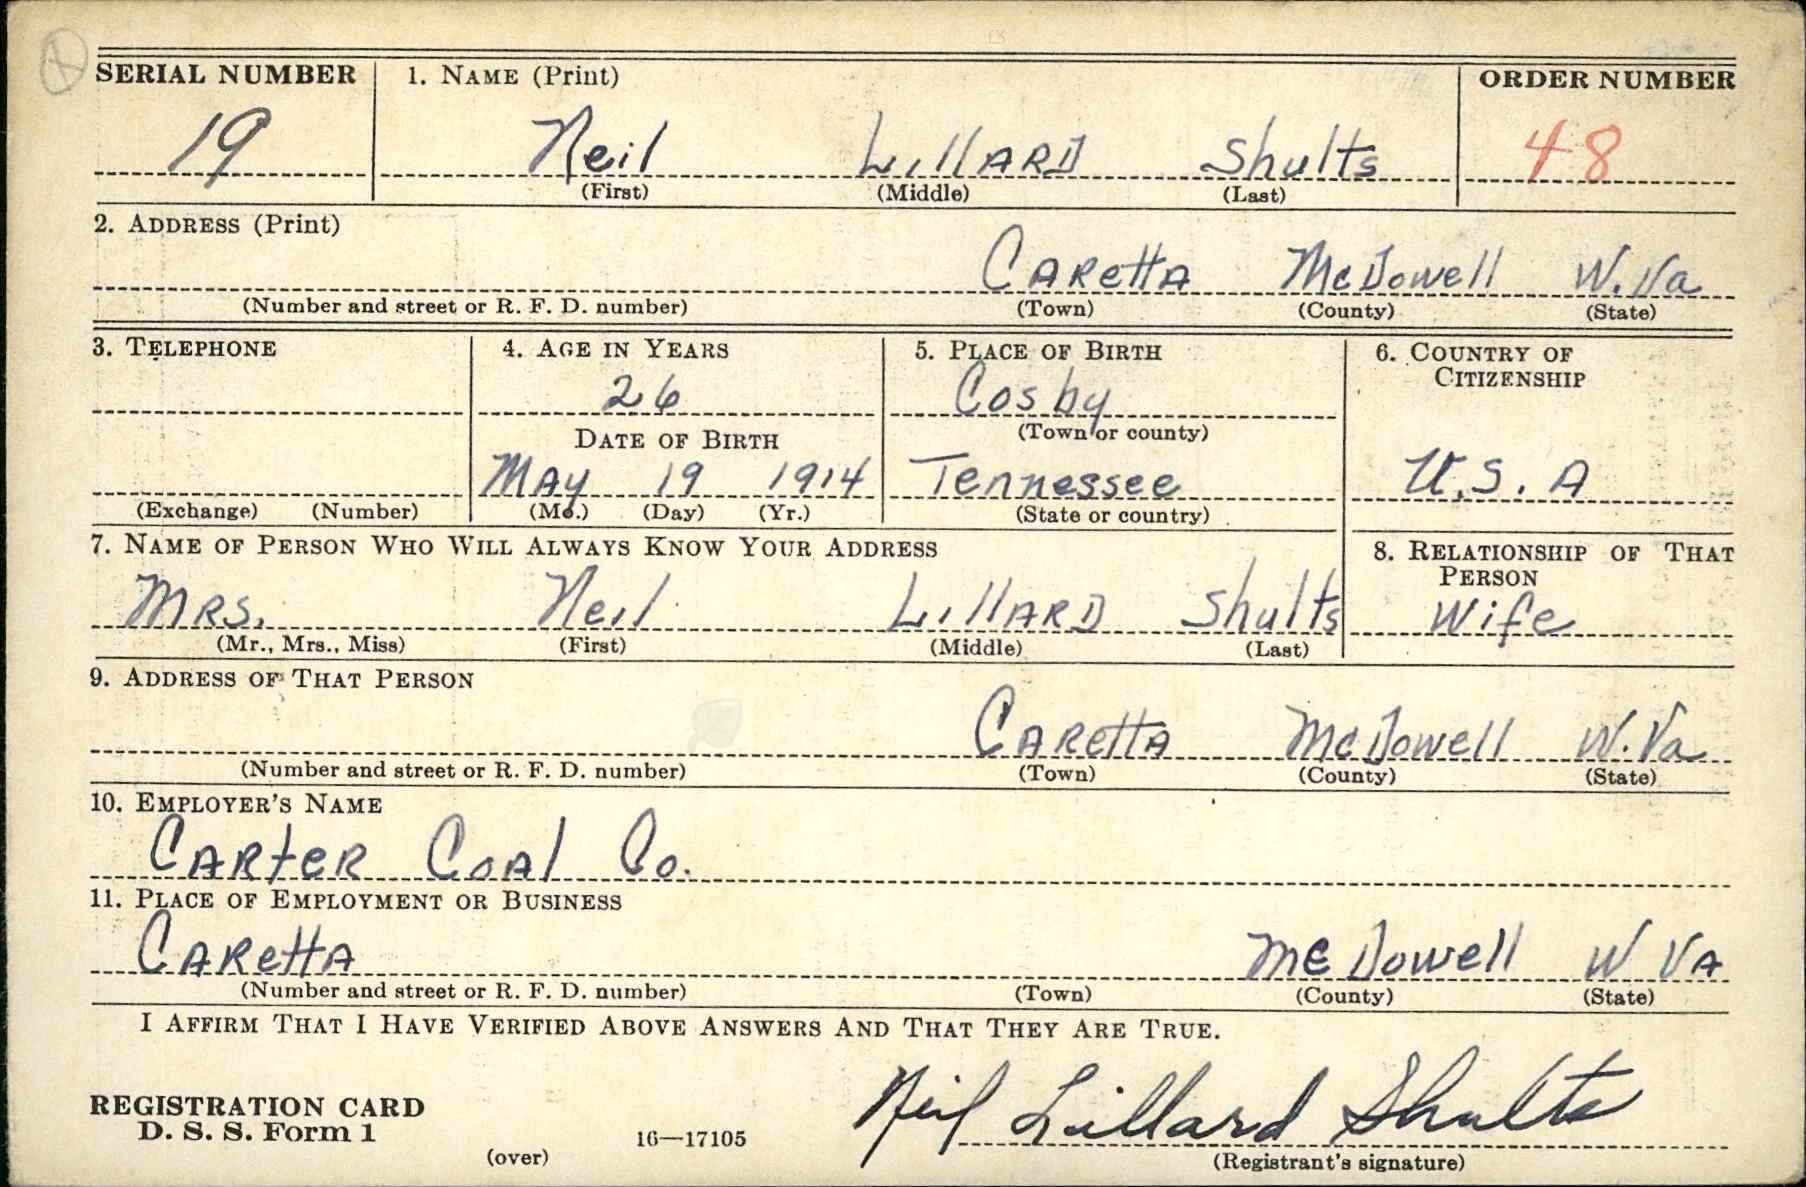 SERIAL NUMBER 1. NAME (Print) ORDER NUMBER
19 Neil LillARD Shults 48
(First) (Middle) (Last)
2. ADDRESS (Print)
CARettA McDowell W. Va
(Number and street or R. F. D. number) (Town) (County) (State)
3. TELEPHONE 4. AGE IN YEARS 5. PLACE OF BIRTH 6. COUNTRY OF
CITIZENSHIP
26 Cosby
DATE OF BIRTH (Town or county)
MAy 19 1914 Tennessee U.S.A
(Exchange) (Number) (Mo.) (Day) (Yr.) (State or country)
7. NAME OF PERSON WHO WILL ALWAYS KNOW YOUR ADDRESS 8. RELATIONSHIP OF THAT
PERSON
MRS. Neil LillARD Shults Wife
(Mr., Mrs., Miss) (First) (Middle) (Last)
9. ADDRESS OF THAT PERSON
CARettA McDowell W. Va
(Number and street or R. F. D. number) (Town) (County) (State)
10. EMPLOYER'S NAME
CARteR CoAl Co.
11. PLACE OF EMPLOYMENT OR BUSINESS
CARettA McDowell W VA
(Number and street or R. F. D. number) (Town) (County) (State)
I AFFIRM THAT I HAVE VERIFIED ABOVE ANSWERS AND THAT THEY ARE TRUE.
REGISTRATION CARD
D. S. S. Form 1 16—17105 Neil Lillard Shults
(over) (Registrant's signature)